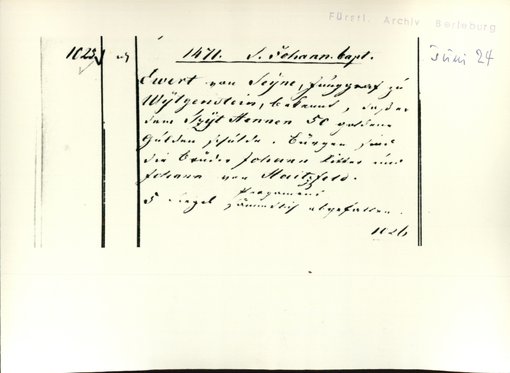 Fürstl. Archiv Berleburg
1025 1471. S. Johann. bapt. Juni 24
Ewert von Seyne, Junggraf zu
Wytgenstein, bekennt, daß er
dem Hennen 50 goldene
Gulden schulde. Bürgen sind
die Brüder Johann Ritter und
Johann von Haitzfeld.
Pergament
3 Siegel sämmtlich abgefallen.
1026